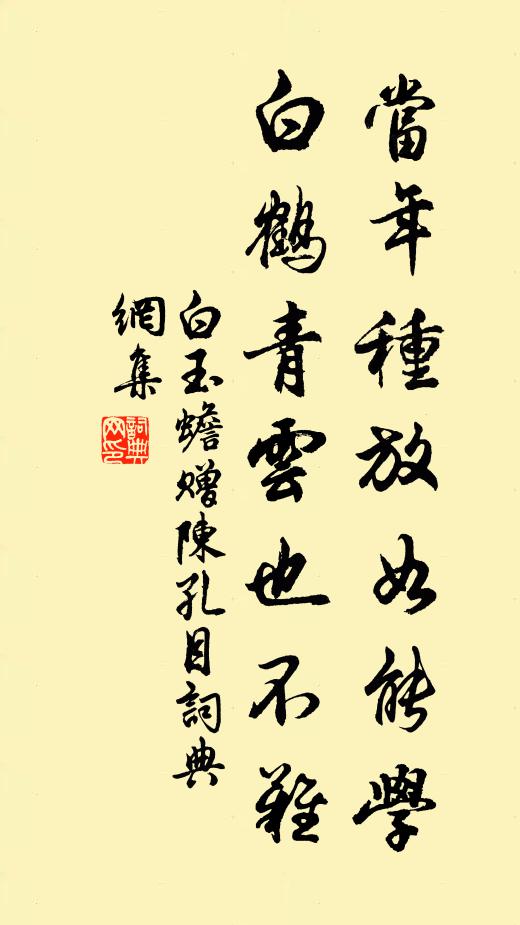 當年種放如能學
白鶴青雲也不難
白玉蟾贈陳孔目詞典
網集
詞典
网印